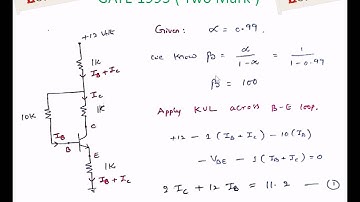 GATE 1993 ( Two Mark )
+12 Volt
1K
IB + IC
IC
10K
1K
C
IB
B
E
1K
IB + IC
Given: α = 0.99.
we know β = α / 1-α = 1 / 1-0.99
β = 100
Apply KVL across B-E loop.
+12 - 1 (IB + IC) - 10(IB)
- VBE - 1 (IB + IC) = 0
2 IC + 12 IB = 11.2 — (1)